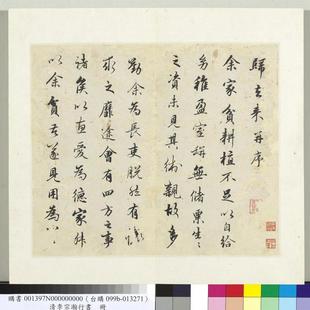 歸去來并序
余家貧耕植不足以自給
幼稚盈室缾無儲粟生〻
之資未見其術親故多
勸余為長吏脫然有懷
求之靡途會有四方之事
諸侯以惠愛為德家叔
以余貧苦遂見用為小〻
購書001397N000000000(台購099b-013271)
清李宗瀚行書 冊